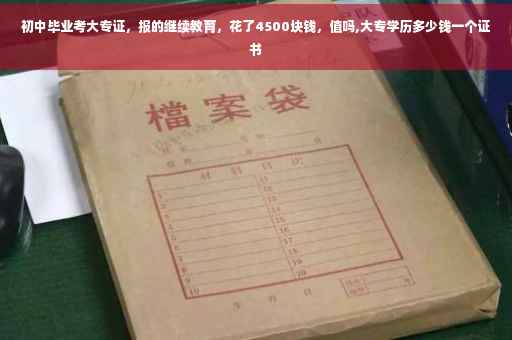 初中毕业考大专证，报的继续教育，花了4500块钱，值吗,大专学历多少钱一个证
书
檔案袋
材料目次
1
2
3
4
5
6
7
8
9
10
11
12
13
14
15
16
17
18
19
20
年 月 日